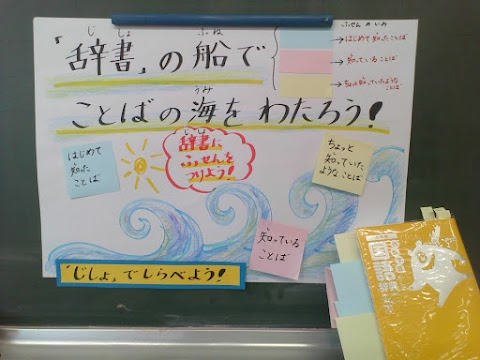 「辞書」の船で
ことばの海をわたろう!
じしょ
ふね
うみ
ふせんのいみ
→はじめて知ったことば
→知っていることば
→ちょっと知っていたような
ことば
はじめて
知った
ことば
じしょ
辞書に
ふせんを
つけよう!
ちょっと
知っていた
ようなことば
知っている
ことば
「じしょ」でしらべよう!